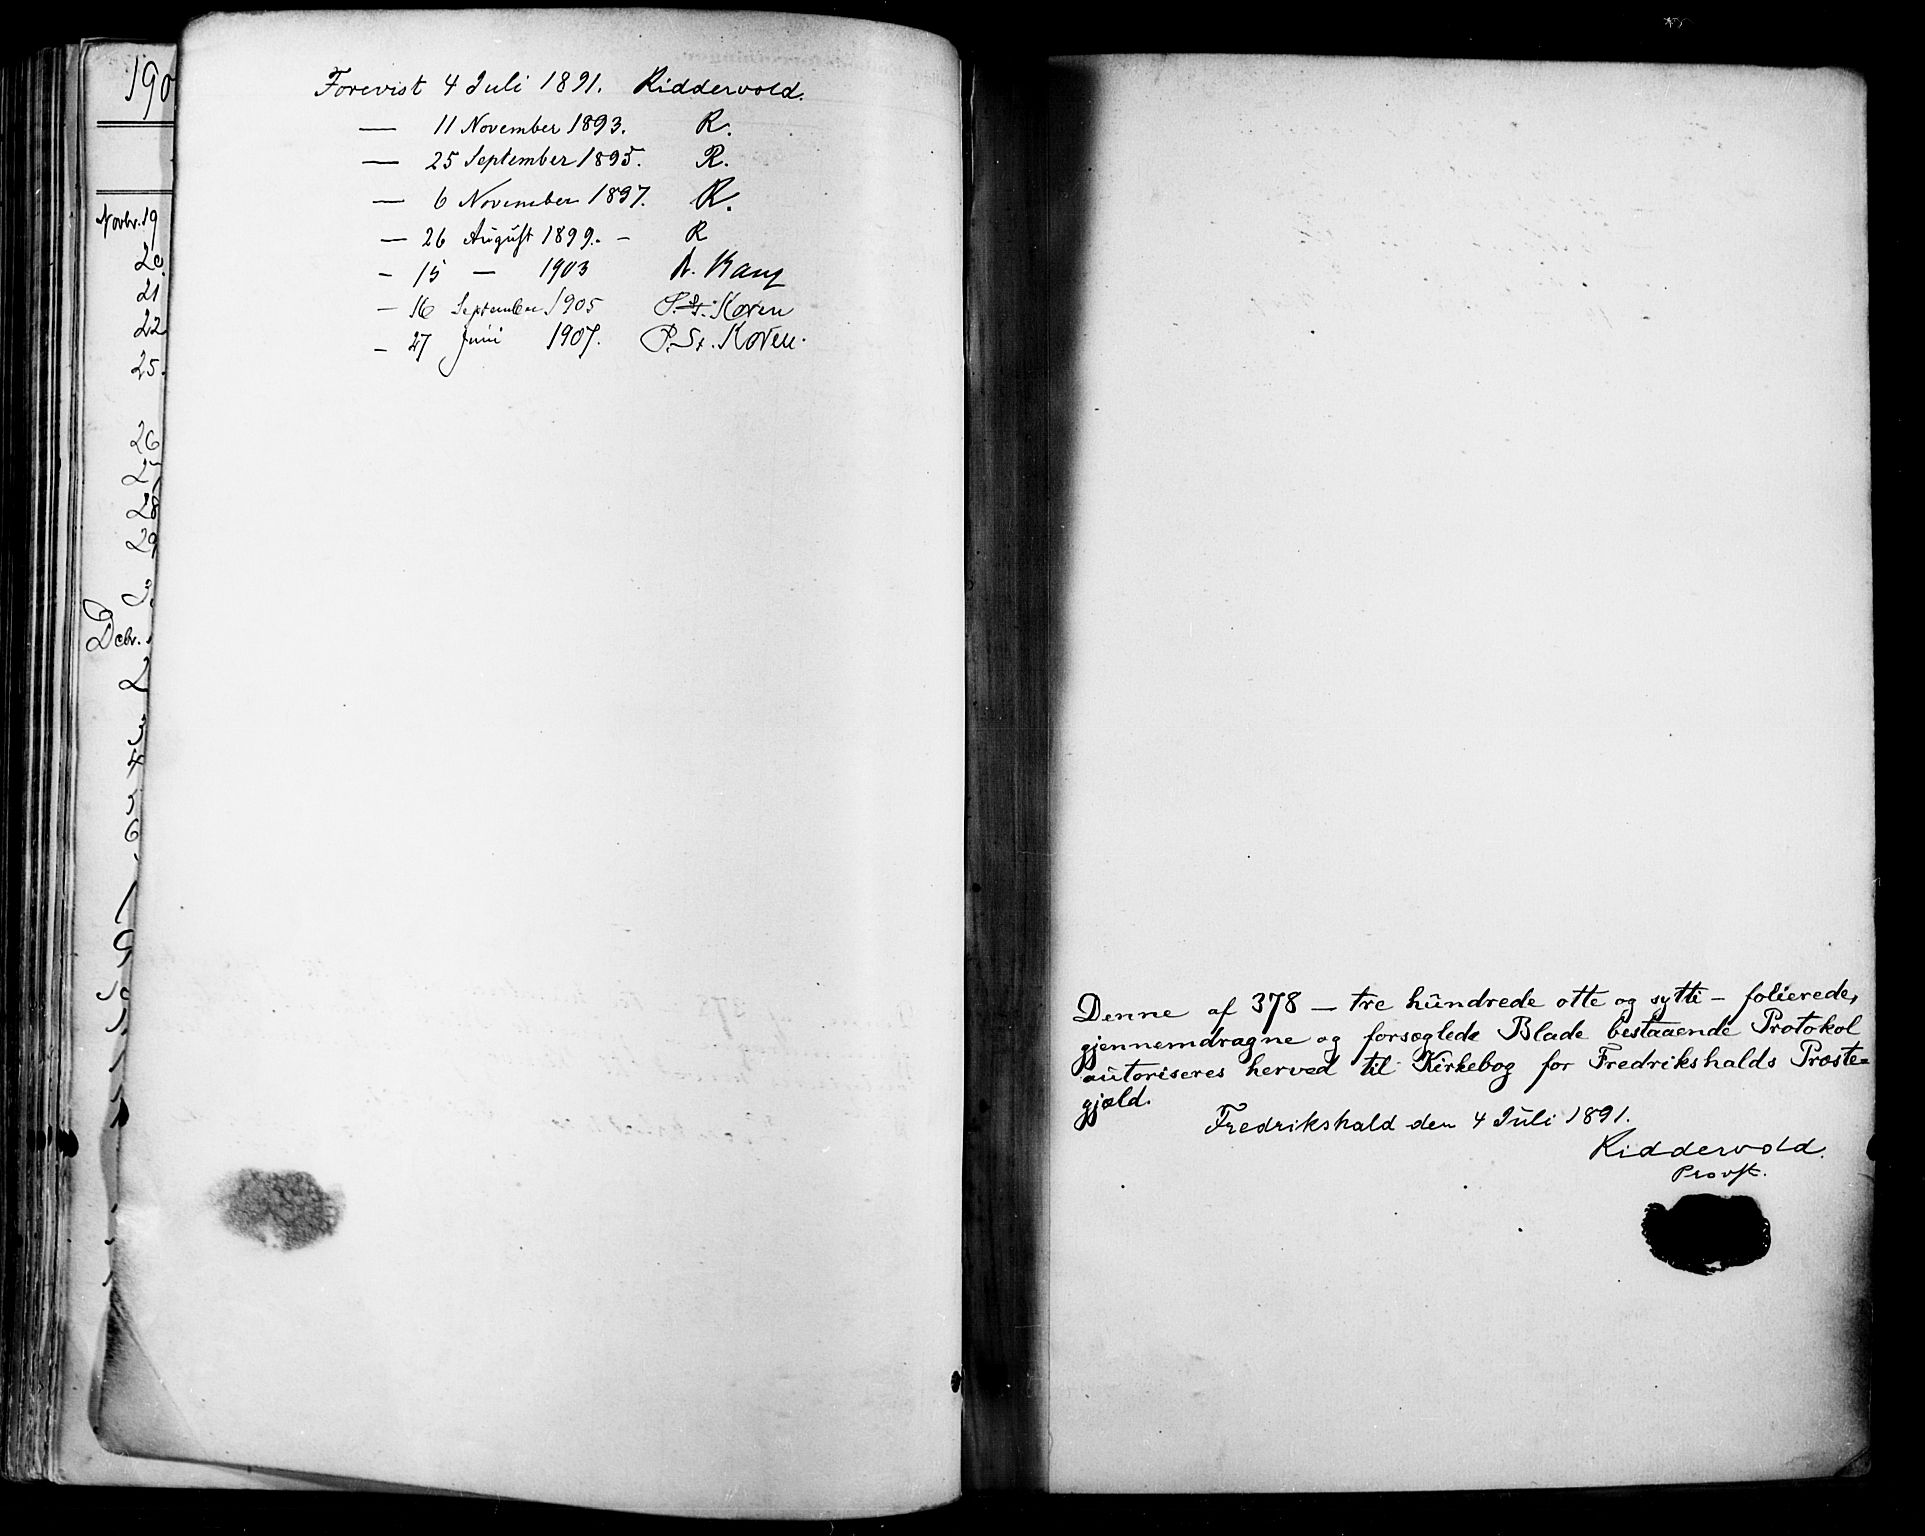 190
Novbr. 19
20
21
22
25.
26
27
28
29
Decbr.
2
3
4
Forevist 4 Juli 1891. Riddervold.
— 11 November 1893. R.
— 25 September 1895. R.
— 6 November 1897. R.
— 26 August 1899. – R
– 15 — 1903 A. Kang
– 16 September 1905 P. St. Koren
– 27 Juni 1907. P. St. Koren.
Denne af 378 – tre hundrede otte og sytti – folierede,
gjennemdragne og forseglede Blade bestaaende Protokol
autoriseres herved til Kirkebog for Fredrikshalds Præste=
gjæld.
Fredrikshald den 4 Juli 1891.
Riddervold.
Provst.